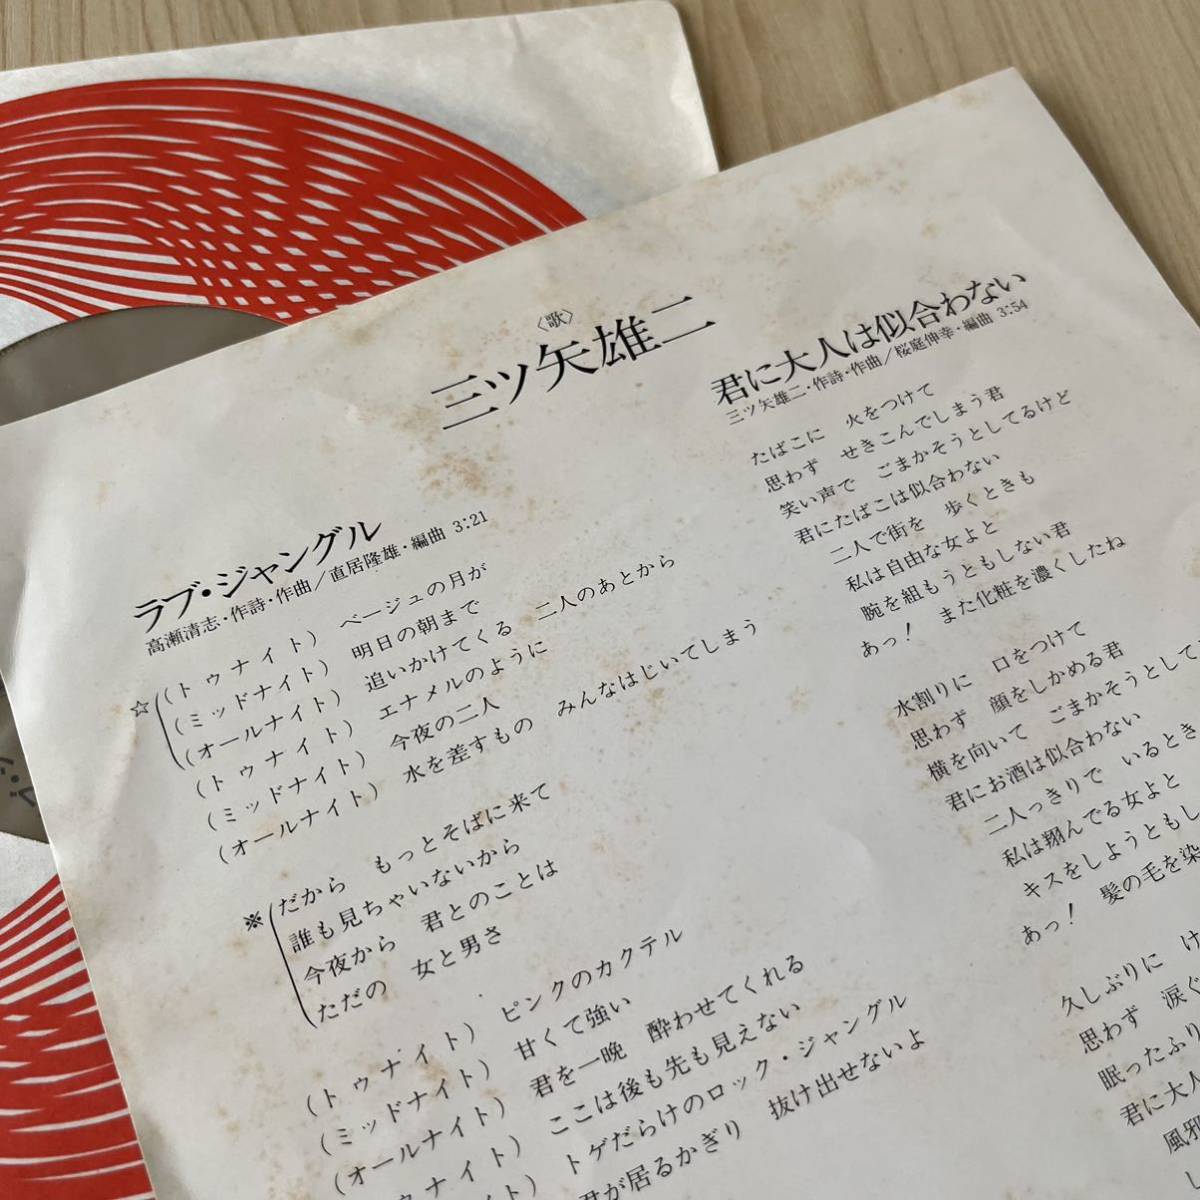 〈歌〉
三ツ矢雄二
ラブ・ジャングル
高瀬清志・作詩・作曲／直居隆雄・編曲 3:21
☆(トゥナイト) ベージュの月が
(ミッドナイト) 明日の朝まで
(オールナイト) 追いかけてくる 二人のあとから
(トゥナイト) エナメルのように
(ミッドナイト) 今夜の二人
(オールナイト) 水を差すもの みんなはじいてしまう
※だから もっとそばに来て
誰も見ちゃいないから
今夜から 君とのことは
ただの 女と男さ
(トゥナイト) ピンクのカクテル
(ミッドナイト) 甘くて強い
(オールナイト) 君を一晩 酔わせてくれる
ゥナイト) ここは後も先も見えない
ドナイト) トゲだらけのロック・ジャングル
ナイト) 君が居るかぎり 抜け出せないよ
君に大人は似合わない
三ツ矢雄二・作詩・作曲／桜庭伸幸・編曲 3:54
たばこに 火をつけて
思わず せきこんでしまう君
笑い声で ごまかそうとしてるけど
君にたばこは似合わない
二人で街を 歩くときも
私は自由な女よと
腕を組もうともしない君
あっ! また化粧を濃くしたね
水割りに 口をつけて
思わず 顔をしかめる君
横を向いて ごまかそうとして
君にお酒は似合わない
二人っきりで いるとき
私は翔んでる女よと
キスをしようともし
あっ! 髪の毛を染
久しぶりに け
思わず 涙ぐ
眠ったふり
君に大人
風邪
し